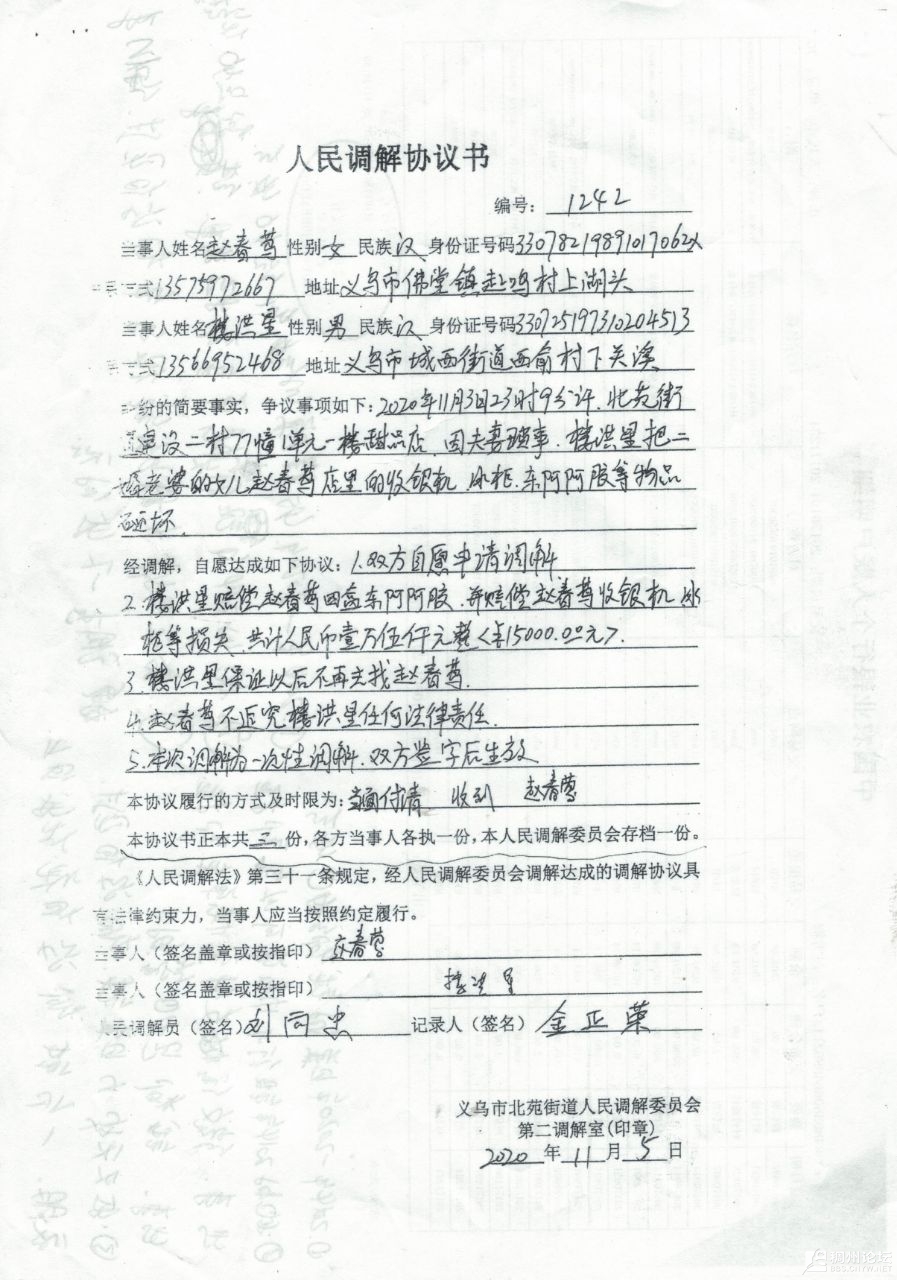 人民调解协议书
编号: 1242
当事人姓名 赵春 性别 女 民族 汉 身份证号码
方式 13575972667 地址 义乌市佛堂镇 村上湖头
当事人姓名 楼洪星 性别 男 民族 汉 身份证号码 330725197310204513
方式 13566952468 地址 义乌市城西街道西俞村下关溪
纠纷的简要事实，争议事项如下: 2020年11月3日23时9分许.北苑街
道建设二村77幢1单元一楼甜品店.因夫妻琐事.楼洪星把二
婚老婆的女儿赵春 店里的收银机.冰柜.东阿阿胶等物品
砸坏.
经调解，自愿达成如下协议: 1.双方自愿申请调解.
2.楼洪星赔偿赵春 四盒东阿阿胶.并赔偿赵春 收银机.冰
柜等损失.共计人民币壹万伍仟元整<¥15000.00元>.
3.楼洪星保证以后不再去找赵春
4.赵春 不追究楼洪星任何法律责任.
5.本次调解为一次性调解.双方签字后生效
本协议履行的方式及时限为: 当面付清 收到 赵春
本协议书正本共 三 份，各方当事人各执一份，本人民调解委员会存档一份。
《人民调解法》第三十一条规定，经人民调解委员会调解达成的调解协议具
有法律约束力，当事人应当按照约定履行。
当事人（签名盖章或按指印） 赵春
当事人（签名盖章或按指印） 楼洪星
人民调解员（签名） 刘同忠 记录人（签名） 金正荣
义乌市北苑街道人民调解委员会
第二调解室(印章)
2020 年 11 月 5 日
稠州论坛
BBS.CNYW.NET